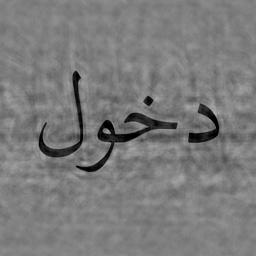 دخول